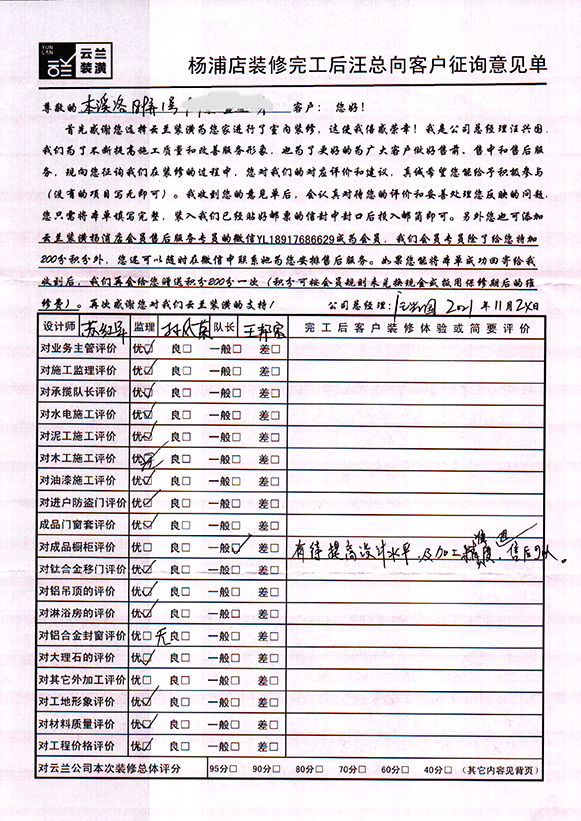 YUN LAN 云兰装潢
杨浦店装修完工后汪总向客户征询意见单
尊敬的 本溪路 客户: 您好!
首先感谢您选择云兰装潢为您家进行了室内装修，这使我倍感荣幸！我是公司总经理汪兴国，
我们为了不断提高施工质量和改善服务形象，也为了更好的为广大客户做好售前、售中和售后服
务，现向您征询我们在装修的过程中，您对我们的对应评价和建议，真诚希望您能给予积极参与
（没有的项目写无即可）。我收到您的意见单后，会认真对待您的评价和妥善处理您反映的问题，
您只需将本单填写完整，装入我们已经贴好邮票的信封中封口后投入邮筒即可。另外您也可添加
云兰装潢杨浦店会员售后服务专员的微信YL18917686629成为会员，我们会员专员除了给您特加
200分积分外，您还可以随时在微信中联系她为您安排售后服务。如果您能将本单成功回寄给我
收到后，我们再会给您赠送积分200分一次（积分可按会员规则来兑换现金或抵用保修期后的维
修费）。再次感谢您对我们云兰装潢的支持！ 公司总经理: 汪兴国 2021 年 11 月 24 日
设计师 苏红军 监理 队长 王邦富 完工后客户装修体验或简要评价
对业务主管评价 优☑ 良□ 一般□ 差□
对施工监理评价 优☑ 良□ 一般□ 差□
对承揽队长评价 优☑ 良□ 一般□ 差□
对水电施工评价 优☑ 良□ 一般□ 差□
对泥工施工评价 优☑ 良□ 一般□ 差□
对木工施工评价 优☑ 无 良□ 一般□ 差□
对油漆施工评价 优☑ 良□ 一般□ 差□
对进户防盗门评价 优☑ 良□ 一般□ 差□
成品门窗套评价 优☑ 良□ 一般□ 差□
对成品橱柜评价 优□ 良□ 一般☑ 差□ 有待提高设计水平，及加工 质量，售后可以。
对钛合金移门评价 优☑ 良□ 一般□ 差□
对铝吊顶的评价 优☑ 良□ 一般□ 差□
对淋浴房的评价 优☑ 良□ 一般□ 差□
对铝合金封窗评价 优□ 无 良□ 一般□ 差□
对大理石的评价 优☑ 良□ 一般□ 差□
对其它外加工评价 优□ 良□ 一般□ 差□
对工地形象评价 优☑ 良□ 一般□ 差□
对材料质量评价 优☑ 良□ 一般□ 差□
对工程价格评价 优☑ 良□ 一般□ 差□
对云兰公司本次装修总体评分 95分□ 90分□ 80分□ 70分□ 60分□ 40分□ (其它内容见背页)